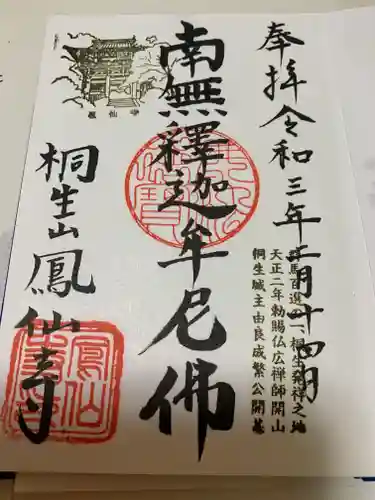 奉拝 令和三年二月十四日
群馬百選の一、桐生発祥之地
天正二年勅賜仏広禅師開山
桐生城主由良成繁公開基
南無釋迦牟尼佛
鳳仙寺
桐生山 鳳仙寺